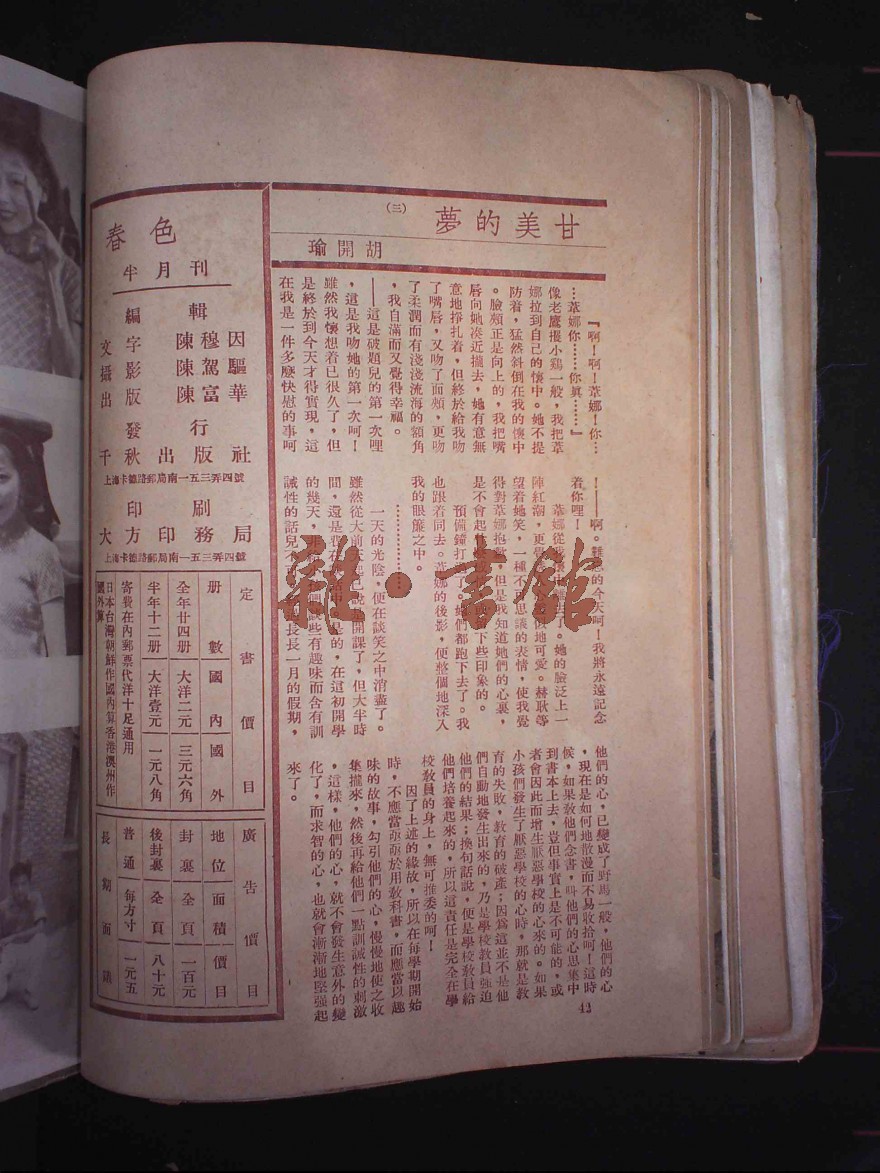 甘美的夢
(三)
胡開瑜
『啊！啊！葦娜！你…
…葦娜你……你眞……』
像老鷹擢小鷄一般，我把葦
娜拉到自己的懷中。她不提
防着，猛然斜倒在我的懷中
。臉頰正是向上的，我把嘴
唇向她凑近攏去，她有意無
意地掙扎着，但終於給我吻
了嘴唇，又吻了面頰，更吻
了柔潤而有淺淺流海的額角
，我自滿而又覺得幸福。
——這是破題兒的第一次哩
，這是我吻她的第一次呵！
雖然我懷想着已很久了，但
是終於到今天才得實現，這
在我是一件多麼快慰的事呵
！——啊。 的今天呵！我將永遠記念
着你哩！
葦娜從 。她的臉泛上一
陣紅潮，更覺 地可愛。赫耿等
望着她笑，一種不可思議的表情，使我覺
得對葦娜抱 但是我知道她們的心裏，
是不會起 下些印象的。
預備鐘打 了。她們都跑下去了。我
也跟着同去。葦娜的後影，便整個地深入
我的眼簾之中。
…………
一天的光陰，便在談笑之中消盡了。
雖然從大前天起已說 開課了，但大半時
間，還是 是的，在這初開學
的幾天， 們談些有趣味而含有訓
誡性的話兒不可 長長一月的假期，
他們的心，已變成了野馬一般，他們的心
，現在是如何地散漫而不易收拾呵！這時
候，如果教他們念書，叫他們的心思集中
到書本上去，豈但事實上是不可能的，或
者會因此而增生厭惡學校的心來的。如果
小孩們發生了厭惡學校的心時，那就是敎
育的失敗，敎育的破產；因爲這並不是他
們自動地發生出來的，乃是學校敎員強迫
他們的結果；換句話說，便是學校敎員給
他們培養起來的，所以這責任是完全在學
校敎員的身上，無可推委的呵！
因了上述的緣故，所以在每學期開始
時，不應當亟亟於用敎科書，而應當以趣
味的故事，勾引他們的心，慢慢地使之收
集攏來，然後再給他們一點訓誡性的刺激
，這樣，他們的心，就不會發生意外的變
化了，而求智的心，也就會漸漸地堅强起
來了。
42
春色
半月刊
編輯
文字 陳穆因
攝影 陳駕驅
出版 陳富華
發行
千秋出版社
上海卡德路郵局南一五三弄四號
印刷
大方印務局
上海卡德路郵局南一五三弄四號
定書價目
册數 國內 國外
全年廿四册 大洋二元 三元六角
半年十二册 大洋壹元 一元八角
寄費在內郵票代洋十足通用
日本台灣朝鮮作國內算香港澳州作
國外算
廣告價目
地位 面積 價目
封裏 全頁 一百元
後封裏 全頁 八十元
普通 每方寸 一元五
長期面議
雜·書館